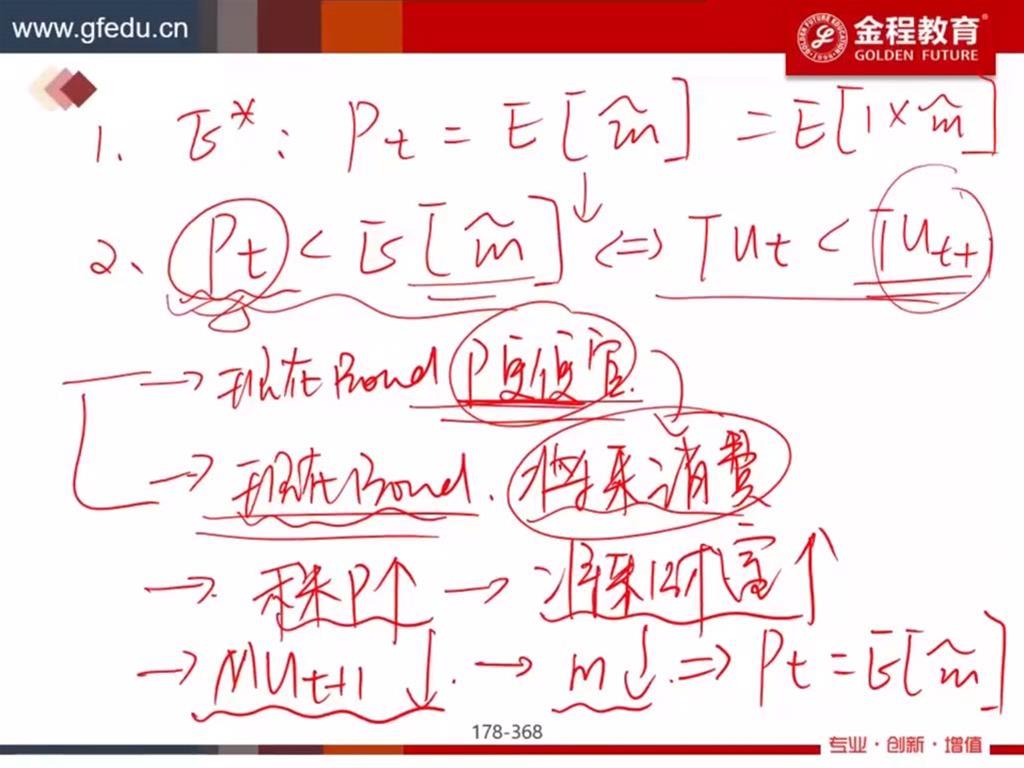 www.gfedu.cn
金程教育
GOLDEN FUTURE
1. E*: Pt = E[m̃] = E[1×m̃]
2、 Pt < E[m̃] ↓ <=> TUt < TUt+
→ 现在Bond P更便宜.
→ 现在Bond. 将来消费
→ 未来P↑ → 将来财富↑
→ MUt+1 ↓. → m↓. => Pt = E[m̃]
178-368
专业·创新·增值